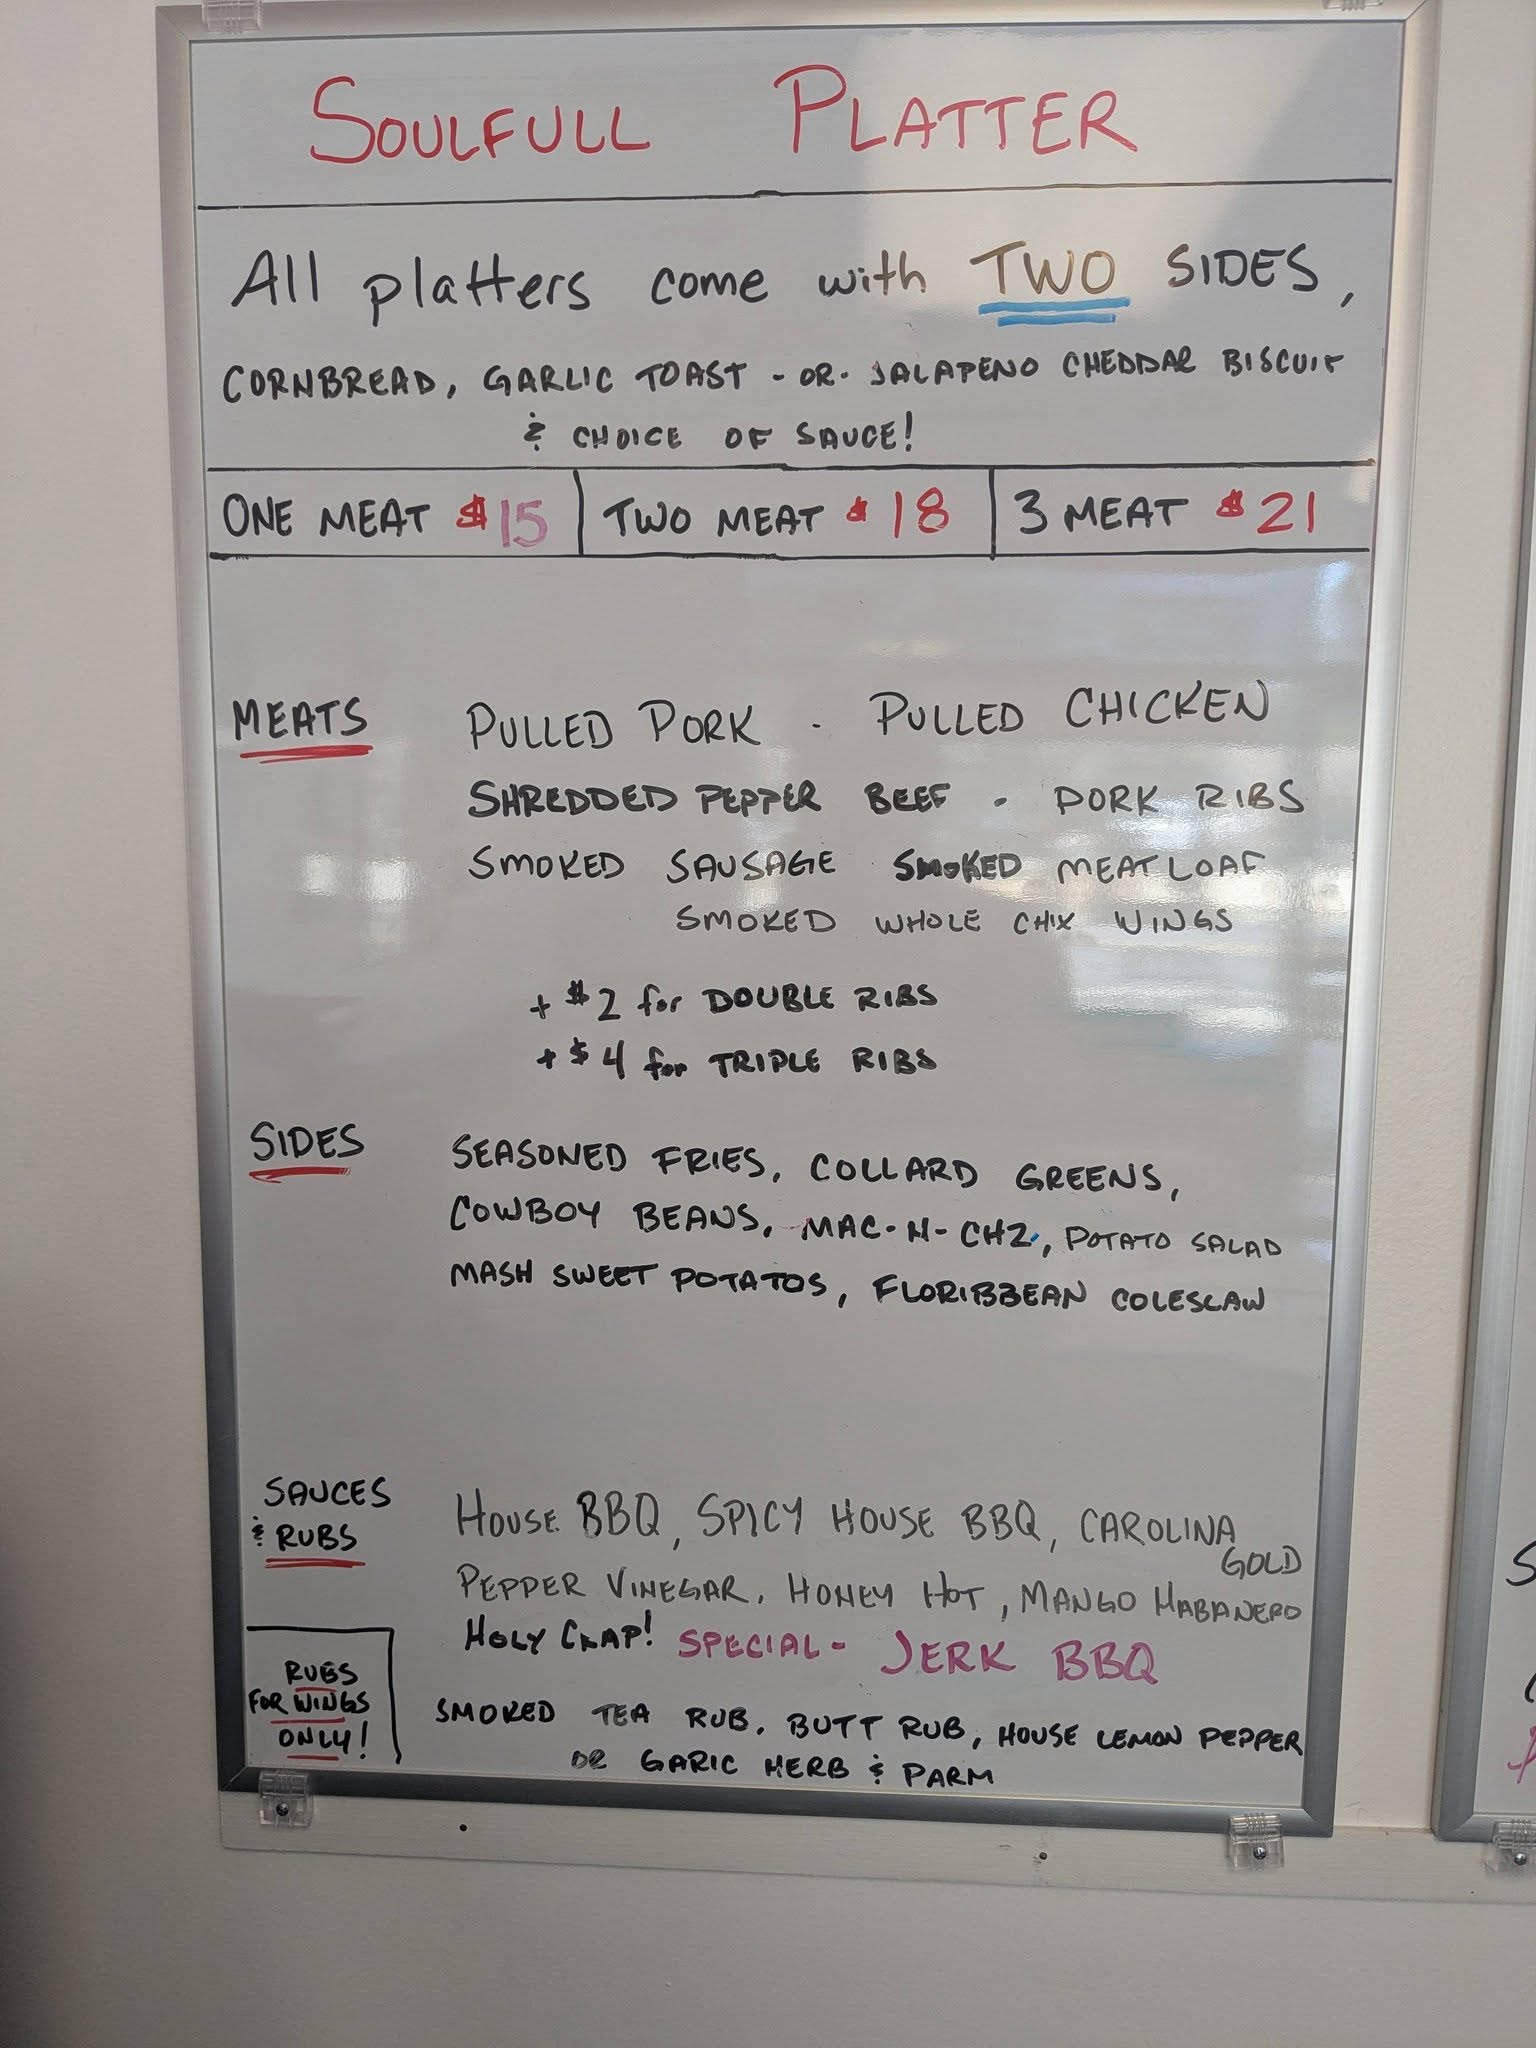 SOULFULL PLATTER
All platters come with TWO SIDES,
CORNBREAD, GARLIC TOAST - OR - JALAPENO CHEDDAR BISCUIT
& CHOICE OF SAUCE!
ONE MEAT $15 TWO MEAT $18 3 MEAT $21
MEATS PULLED PORK - PULLED CHICKEN
SHREDDED PEPPER BEEF - PORK RIBS
SMOKED SAUSAGE SMOKED MEATLOAF
SMOKED WHOLE CHIX WINGS
+ $2 for DOUBLE RIBS
+ $4 for TRIPLE RIBS
SIDES SEASONED FRIES, COLLARD GREENS,
COWBOY BEANS, MAC-N-CHZ, POTATO SALAD
MASH SWEET POTATOS, FLORIBBEAN COLESLAW
SAUCES
& RUBS
HOUSE BBQ, SPICY HOUSE BBQ, CAROLINA
GOLD
PEPPER VINEGAR, HONEY HOT, MANGO HABANERO
HOLY CRAP! SPECIAL - JERK BBQ
RUBS
FOR WINGS
ONLY!
SMOKED TEA RUB, BUTT RUB, HOUSE LEMON PEPPER
OR GARIC HERB & PARM